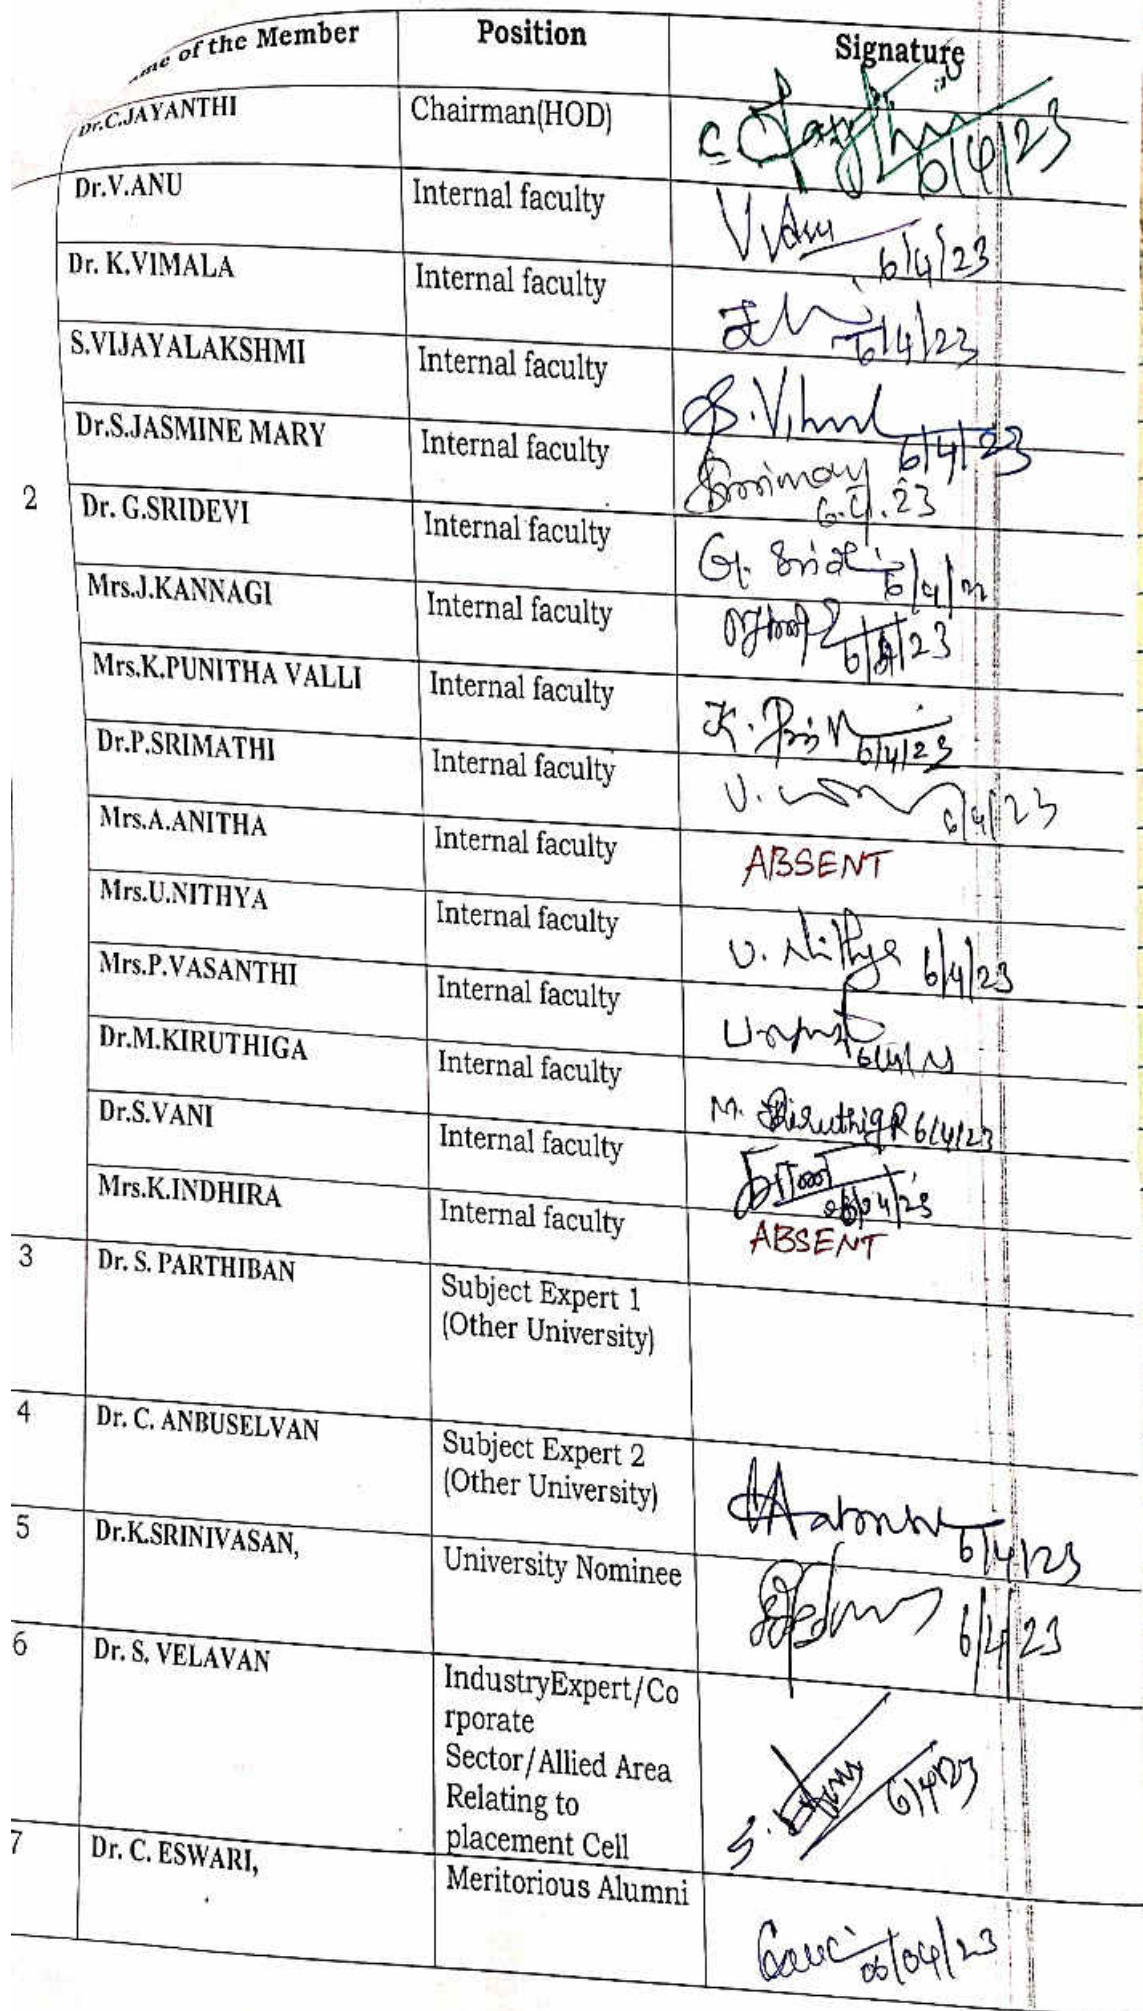 of the Member Position Signature
Dr.C.JAYANTHI Chairman(HOD) 6/4/23
Dr.V.ANU Internal faculty V.Anu 6/4/23
Dr. K.VIMALA Internal faculty 6/4/23
S.VIJAYALAKSHMI Internal faculty 6/4/23
Dr.S.JASMINE MARY Internal faculty 6.4.23
2 Dr. G.SRIDEVI Internal faculty
Mrs.J.KANNAGI Internal faculty 6/4/23
Mrs.K.PUNITHA VALLI Internal faculty 6/4/23
Dr.P.SRIMATHI Internal faculty 6/4/23
Mrs.A.ANITHA Internal faculty ABSENT
Mrs.U.NITHYA Internal faculty U. Nithya 6/4/23
Mrs.P.VASANTHI Internal faculty
Dr.M.KIRUTHIGA Internal faculty M. Kiruthiga 6/4/23
Dr.S.VANI Internal faculty 06/04/23
Mrs.K.INDHIRA Internal faculty ABSENT
3 Dr. S. PARTHIBAN Subject Expert 1
(Other University)
4 Dr. C. ANBUSELVAN Subject Expert 2
(Other University) 6/4/23
5 Dr.K.SRINIVASAN, University Nominee 6/4/23
6 Dr. S. VELAVAN IndustryExpert/Co
rporate
Sector/Allied Area 6/4/23
Relating to
placement Cell
7 Dr. C. ESWARI, Meritorious Alumni
06/04/23